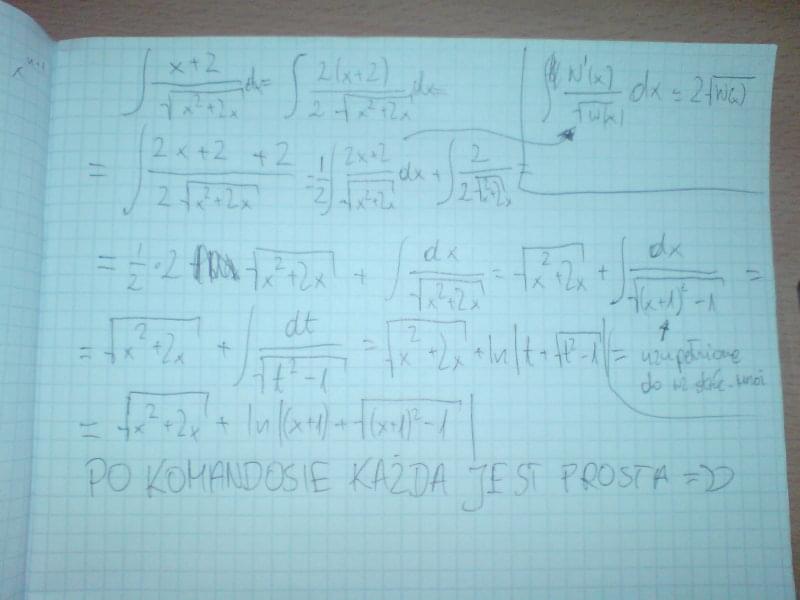 x^{n+1}
∫ (x+2)/√(x²+2x) dx = ∫ 2(x+2)/(2√(x²+2x)) dx =
∫ W'(x)/√W(x) dx = 2√W(x)
= ∫ (2x+2 +2)/(2√(x²+2x)) = 1/2 ∫ (2x+2)/√(x²+2x) dx + ∫ 2/(2√(x²+2x)) =
= 1/2 · 2 √(x²+2x) + ∫ dx/√(x²+2x) = √(x²+2x) + ∫ dx/√((x+1)²-1) =
= √(x²+2x) + ∫ dt/√(t²-1) = √(x²+2x) + ln|t + √(t²-1)| =
uzupełnione
do wz
= √(x²+2x) + ln|(x+1) + √((x+1)²-1)|
PO KOMANDOSIE KAŻDA JEST PROSTA =D